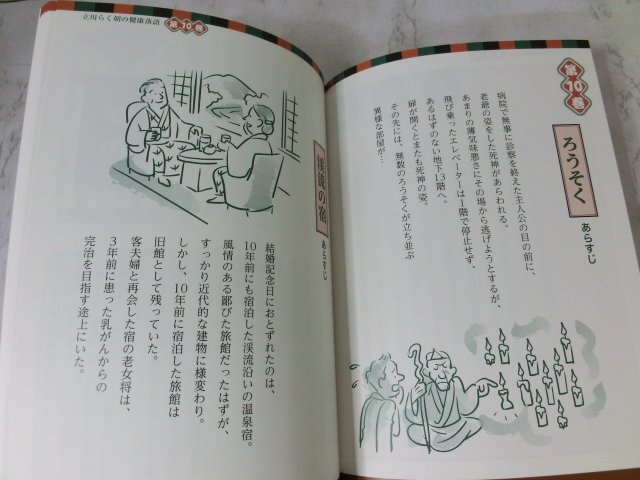 第10巻
ろうそく
あらすじ
病院で無事に診察を終えた主人公の目の前に、
老爺の姿をした死神があらわれる。
あまりの薄気味悪さにその場から逃げようとするが、
飛び乗ったエレベーターは1階で停止せず、
あるはずのない地下13階へ。
扉が開くとまたも死神の姿。
その先には、無数のろうそくが立ち並ぶ
異様な部屋が…
立川らく朝の健康落語 第10巻
渓流の宿
あらすじ
結婚記念日におとずれたのは、
10年前にも宿泊した渓流沿いの温泉宿。
風情のある鄙びた旅館だったはずが、
すっかり近代的な建物に様変わり。
しかし、10年前に宿泊した旅館は
旧館として残っていた。
客夫婦と再会した宿の老女将は、
3年前に患った乳がんからの
完治を目指す途上にいた。